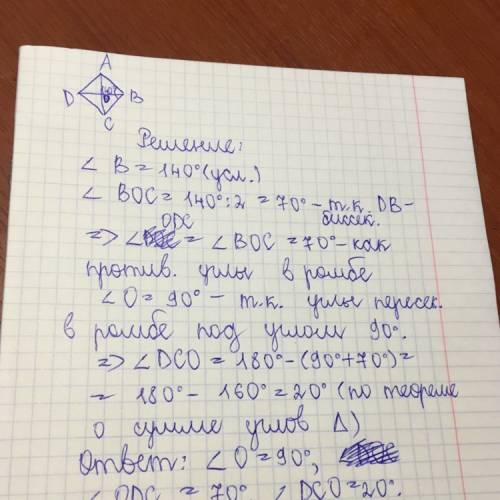 A
D B
O
C
Решение:
∠ B = 140° (усл.)
∠ BOC = 140° : 2 = 70° – т.к. DB –
биссек.
ODC
=> ∠ = ∠ BOC = 70° – как
против. углы в ромбе
∠O = 90° – т.к. углы пересек.
в ромбе под углом 90°.
=> ∠DCO = 180° – (90° + 70°) =
= 180° – 160° = 20° (по теореме
о сумме углов Δ)
Ответ: ∠O = 90°,
∠ODC = 70°, ∠DCO = 20°.